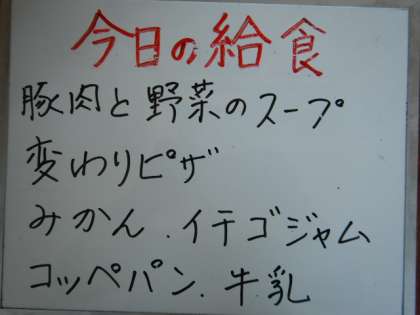 今日の給食
豚肉と野菜のスープ
変わりピザ
みかん.イチゴジャム
コッペパン.牛乳